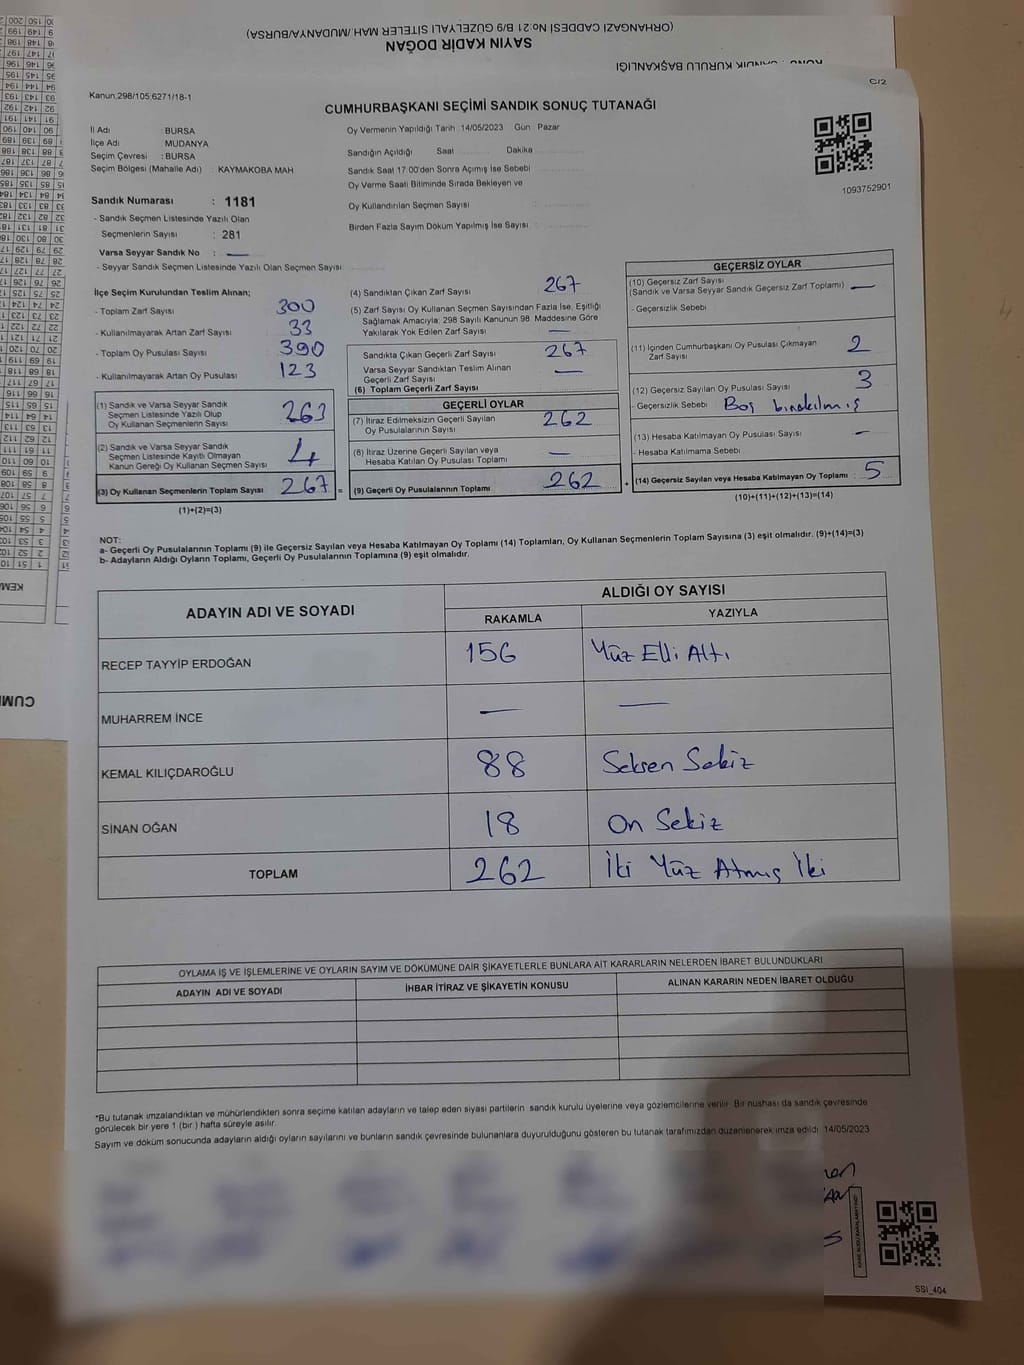 (ORHANGAZİ CADDESİ No:21 B/9 GÜZELYALI SİTELER MAH /MUDANYA/BURSA)
SAYIN KADİR DOĞAN
SANDIK KURULU BAŞKANLIĞI
C/2
Kanun.298/105,6271/18-1
CUMHURBAŞKANI SEÇİMİ SANDIK SONUÇ TUTANAĞI
İl Adı BURSA
İlçe Adı MUDANYA
Seçim Çevresi : BURSA
Seçim Bölgesi (Mahalle Adı) : KAYMAKOBA MAH
Oy Vermenin Yapıldığı Tarih :14/05/2023 Gün Pazar
Sandığın Açıldığı Saat Dakika
Sandık Saat 17 00'den Sonra Açımış İse Sebebi
Oy Verme Saati Bitiminde Sırada Bekleyen ve
Oy Kullandırılan Seçmen Sayısı
Birden Fazla Sayım Döküm Yapılmış İse Sayısı
1093752901
Sandık Numarası : 1181
- Sandık Seçmen Listesinde Yazılı Olan
Seçmenlerin Sayısı : 281
Varsa Seyyar Sandık No : —
- Seyyar Sandık Seçmen Listesinde Yazılı Olan Seçmen Sayısı:
İlçe Seçim Kurulundan Teslim Alınan;
- Toplam Zarf Sayısı 300
- Kullanılmayarak Artan Zarf Sayısı 33
- Toplam Oy Pusulası Sayısı 390
- Kullanılmayarak Artan Oy Pusulası 123
(1) Sandık ve Varsa Seyyar Sandık
Seçmen Listesinde Yazılı Olup
Oy Kullanan Seçmenlerin Sayısı 263
(2) Sandık ve Varsa Seyyar Sandık
Seçmen Listesinde Kayıtlı Olmayan
Kanun Gereği Oy Kullanan Seçmen Sayısı 4
(3) Oy Kullanan Seçmenlerin Toplam Sayısı 267 =
(1)+(2)=(3)
(4) Sandıktan Çıkan Zarf Sayısı 267
(5) Zarf Sayısı Oy Kullanan Seçmen Sayısından Fazla İse, Eşitliği
Sağlamak Amacıyla; 298 Sayılı Kanunun 98. Maddesine Göre
Yakılarak Yok Edilen Zarf Sayısı —
Sandıkta Çıkan Geçerli Zarf Sayısı 267
Varsa Seyyar Sandıktan Teslim Alınan
Geçerli Zarf Sayısı —
(6) Toplam Geçerli Zarf Sayısı
GEÇERLİ OYLAR
(7) İtiraz Edilmeksizin Geçerli Sayılan
Oy Pusulalarının Sayısı 262
(8) İtiraz Üzerine Geçerli Sayılan veya
Hesaba Katılan Oy Pusulası Toplamı —
(9) Geçerli Oy Pusulalarının Toplamı 262 +
GEÇERSİZ OYLAR
(10) Geçersiz Zarf Sayısı
(Sandık ve Varsa Seyyar Sandık Geçersiz Zarf Toplamı) —
- Geçersizlik Sebebi
(11) İçinden Cumhurbaşkanı Oy Pusulası Çıkmayan
Zarf Sayısı 2
(12) Geçersiz Sayılan Oy Pusulası Sayısı 3
- Geçersizlik Sebebi Boş bırakılmış
(13) Hesaba Katılmayan Oy Pusulası Sayısı —
- Hesaba Katılmama Sebebi
(14) Geçersiz Sayılan veya Hesaba Katılmayan Oy Toplamı 5
(10)+(11)+(12)+(13)=(14)
NOT:
a- Geçerli Oy Pusulalarının Toplamı (9) ile Geçersiz Sayılan veya Hesaba Katılmayan Oy Toplamı (14) Toplamları, Oy Kullanan Seçmenlerin Toplam Sayısına (3) eşit olmalıdır. (9)+(14)=(3)
b- Adayların Aldığı Oyların Toplamı, Geçerli Oy Pusulalarının Toplamına (9) eşit olmalıdır.
ADAYIN ADI VE SOYADI ALDIĞI OY SAYISI
RAKAMLA YAZIYLA
RECEP TAYYİP ERDOĞAN 156 Yüz Elli Altı
MUHARREM İNCE — —
KEMAL KILIÇDAROĞLU 88 Seksen Sekiz
SİNAN OĞAN 18 On Sekiz
TOPLAM 262 İki Yüz Atmış İki
OYLAMA İŞ VE İŞLEMLERİNE VE OYLARIN SAYIM VE DÖKÜMÜNE DAİR ŞİKAYETLERLE BUNLARA AİT KARARLARIN NELERDEN İBARET BULUNDUKLARI
ADAYIN ADI VE SOYADI İHBAR İTİRAZ VE ŞİKAYETİN KONUSU ALINAN KARARIN NEDEN İBARET OLDUĞU
*Bu tutanak imzalandıktan ve mühürlendikten sonra seçime katılan adayların ve talep eden siyasi partilerin sandık kurulu üyelerine veya gözlemcilerine verilir. Bir nüshası da sandık çevresinde
görülecek bir yere 1 (bir ) hafta süreyle asılır.
Sayım ve döküm sonucunda adayların aldığı oyların sayılarını ve bunların sandık çevresinde bulunanlara duyurulduğunu gösteren bu tutanak tarafımızdan düzenlenerek imza edildi 14/05/2023
SSI_404